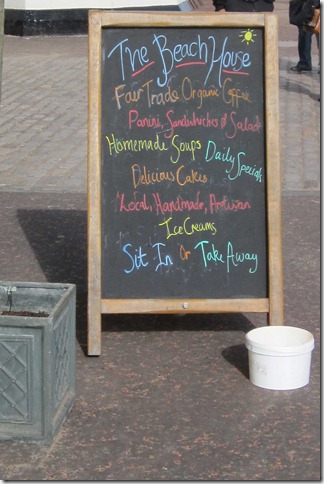 The Beach House
Fair Trade Organic Coffee
Panini, Sandwhiches & Salads
Homemade Soups
Daily Specials
Delicious Cakes
Local, Handmade, Artisan
Ice Creams
Sit In Or Take Away